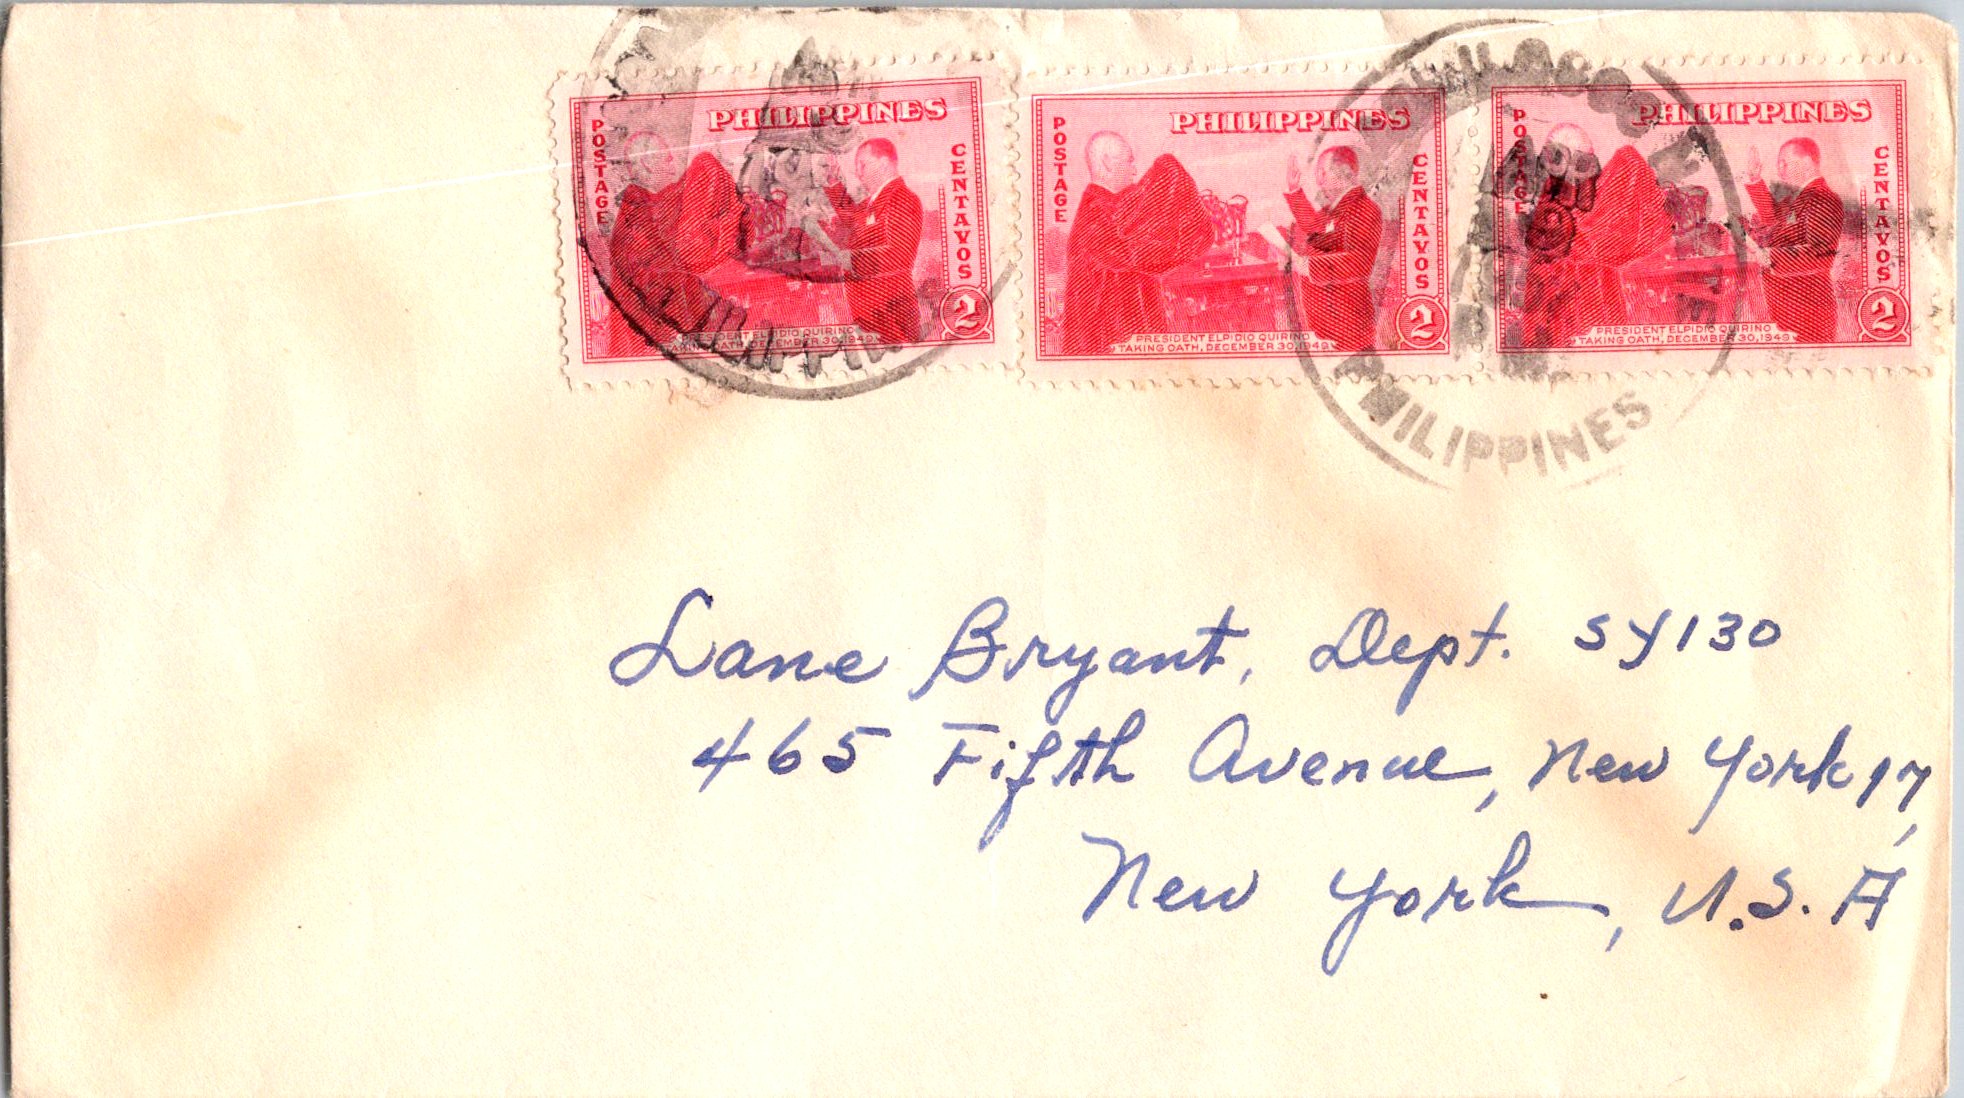 POSTAGE
PHILIPPINES
CENTAVOS
2
ELPIDIO QUIRINO
TAKING OATH, DECEMBER 30, 1949
POSTAGE
PHILIPPINES
CENTAVOS
2
PRESIDENT ELPIDIO QUIRINO
TAKING OATH, DECEMBER 30, 1949
POSTAGE
PHILIPPINES
CENTAVOS
2
PRESIDENT ELPIDIO QUIRINO
TAKING OATH, DECEMBER 30, 1949
PHILIPPINES
APR
PHILIPPINES
Lane Bryant, Dept. SY130
465 Fifth Avenue, New York 17,
New York, U.S.A